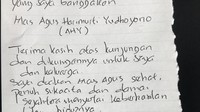 yang saya banggakan
Mas Agus Harimurti Yudhoyono
(AHY)
Terima kasih atas kunjungan
dan dukungannya untuk saya
dan keluarga.
Saya doakan mas Agus sehat,
penuh sukacita dan damai
sejahtera menyertai keberhasilan